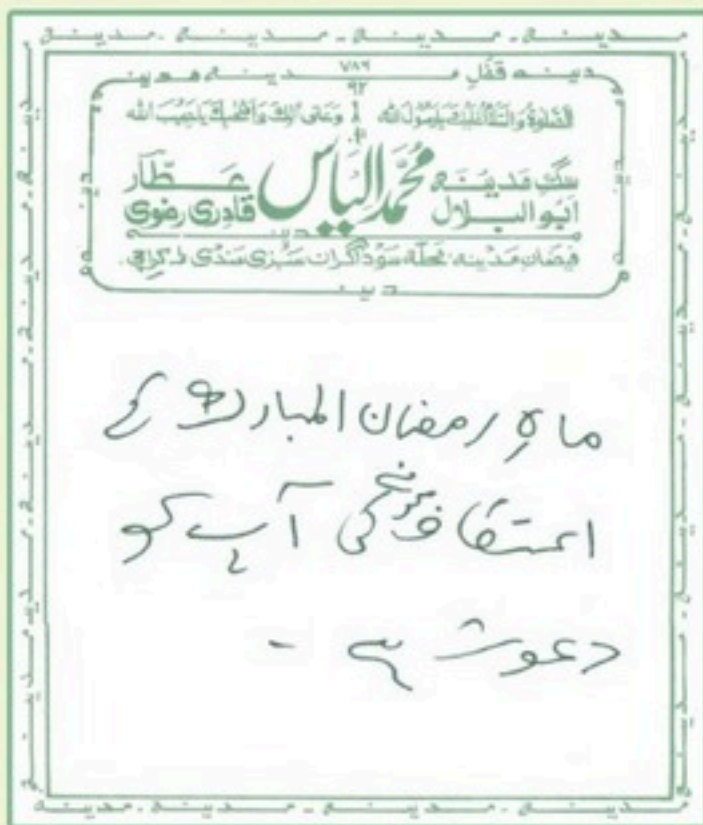 مدینہ - مدینہ - مدینہ - مدینہ - مدینہ
۷۸۶
۹۲
الصلوٰۃ والسلام علیک یا رسول اللہ وعلیٰ اٰلک واصحٰبک یا حبیب اللہ
سگِ مدینہ محمد الیاس عطار
ابو البلال قادری رضوی
فیضانِ مدینہ محلہ سوداگران سبزی منڈی کراچی
ماہِ رمضان المبارک کے
اعتکاف کی آپ کو
دعوت ہے -
مدینہ - مدینہ - مدینہ - مدینہ - مدینہ